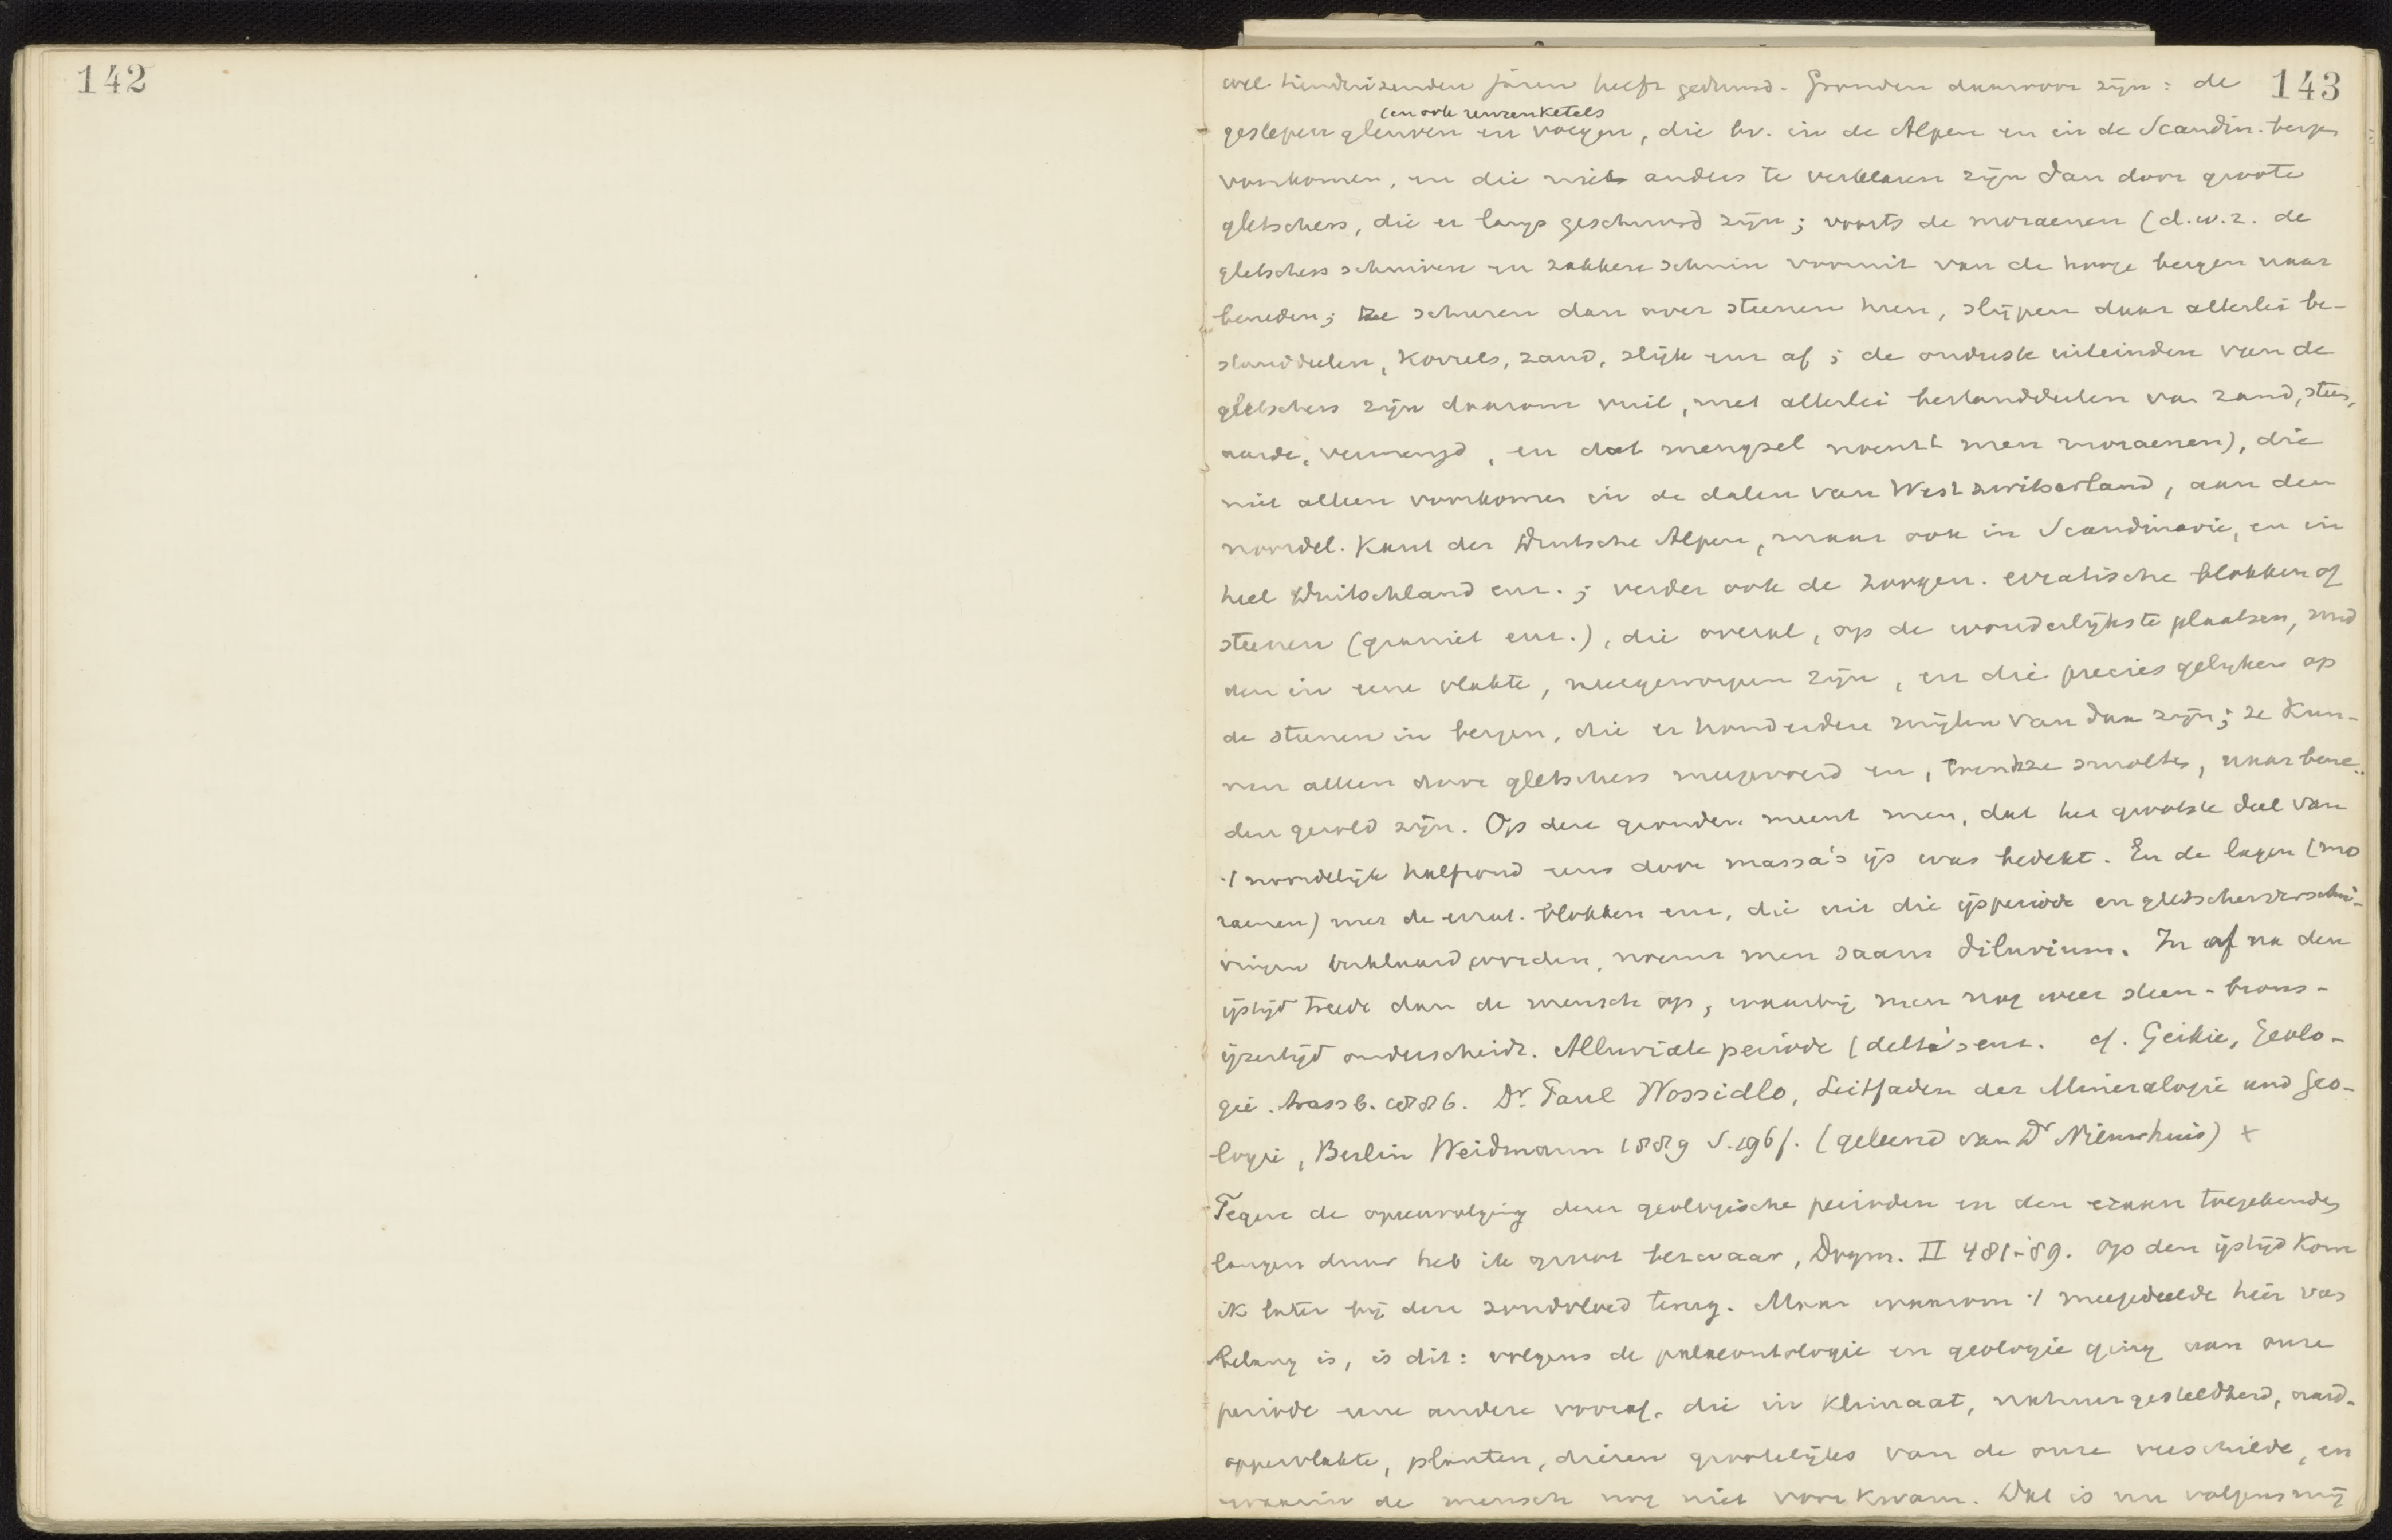 142
143
wel honderdduizenden jaren heeft geduurd. Gronden daarvoor zijn: de
(en ook reuzenketels
geslepen gleuven en voegen, die bv. in de Alpen en in de Scandin. bergen
voorkomen, en die niets anders te verklaren zijn dan door groote
gletschers, die er langs geschuurd zijn; voorts de moraenen (d.w.z. de
gletschers schuiven en zakken schuin vooruit van de hooge bergen naar
beneden; ze schuren dan over steenen heen, slijpen daar allerlei be-
standdeelen, korrels, zand, slijk enz af; de onderste uiteinden van de
gletschers zijn daarom vuil, met allerlei bestanddeelen van zand, steen,
aarde, vermengd, en dat mengsel noemt men moraenen), die
niet alleen voorkomen in de dalen van West Zwitserland, aan den
noordel. Kant der Duitsche Alpen, maar ook in Scandinavie, en in
heel Duitschland enz.; verder ook de zoogen. erratische blokken of
steenen (graniet enz.), die overal, op de wonderlijkste plaatsen, mid
den in eene vlakte, neergeworpen zijn, en die precies gelijken op
de steenen in bergen, die er honderden mijlen van daan zijn; ze kun-
nen alleen door gletschers meegevoerd en, toen ze smolten, naar bene-
den gerold zijn. Op deze gronden meent men, dat het grootste deel van
't noordelijk halfrond eens door massa's ijs was bedekt. En de lagen (mo
raenen) met de errat. blokken enz, die uit die ijsperiode en gletscherverschui-
vingen verklaard worden, noemt men saam diluvium. In of na den
ijstijd treedt dan de mensch op, waarbij men nog weer steen- brons-
ijzertijd onderscheidt. Alluviale periode (delta's enz. cf. Geikie, Geolo-
gie. Strassb. 1886. Dr. Paul Wossidlo, Leitfaden der Mineralogie und Geo-
logie, Berlin Weidmann 1889 S.196f. (geleend van Dr Nieuwhuis) +
Tegen de opeenvolging dezer geologische perioden en den eraan toegekenden
langen duur heb ik groot bezwaar, Dogm. II 481-'89. Op den ijstijd kom
ik later bij den zondvloed terug. Maar waarom 't meegedeelde hier van
belang is, is dit: volgens de palaeontologie en geologie ging aan onze
periode eene andere vooraf, die in klimaat, natuurgesteldheid, aard-
oppervlakte, planten, dieren grootelijks van de onze verschilde, en
waarin de mensch nog niet voorkwam. Dat is nu volgens mij